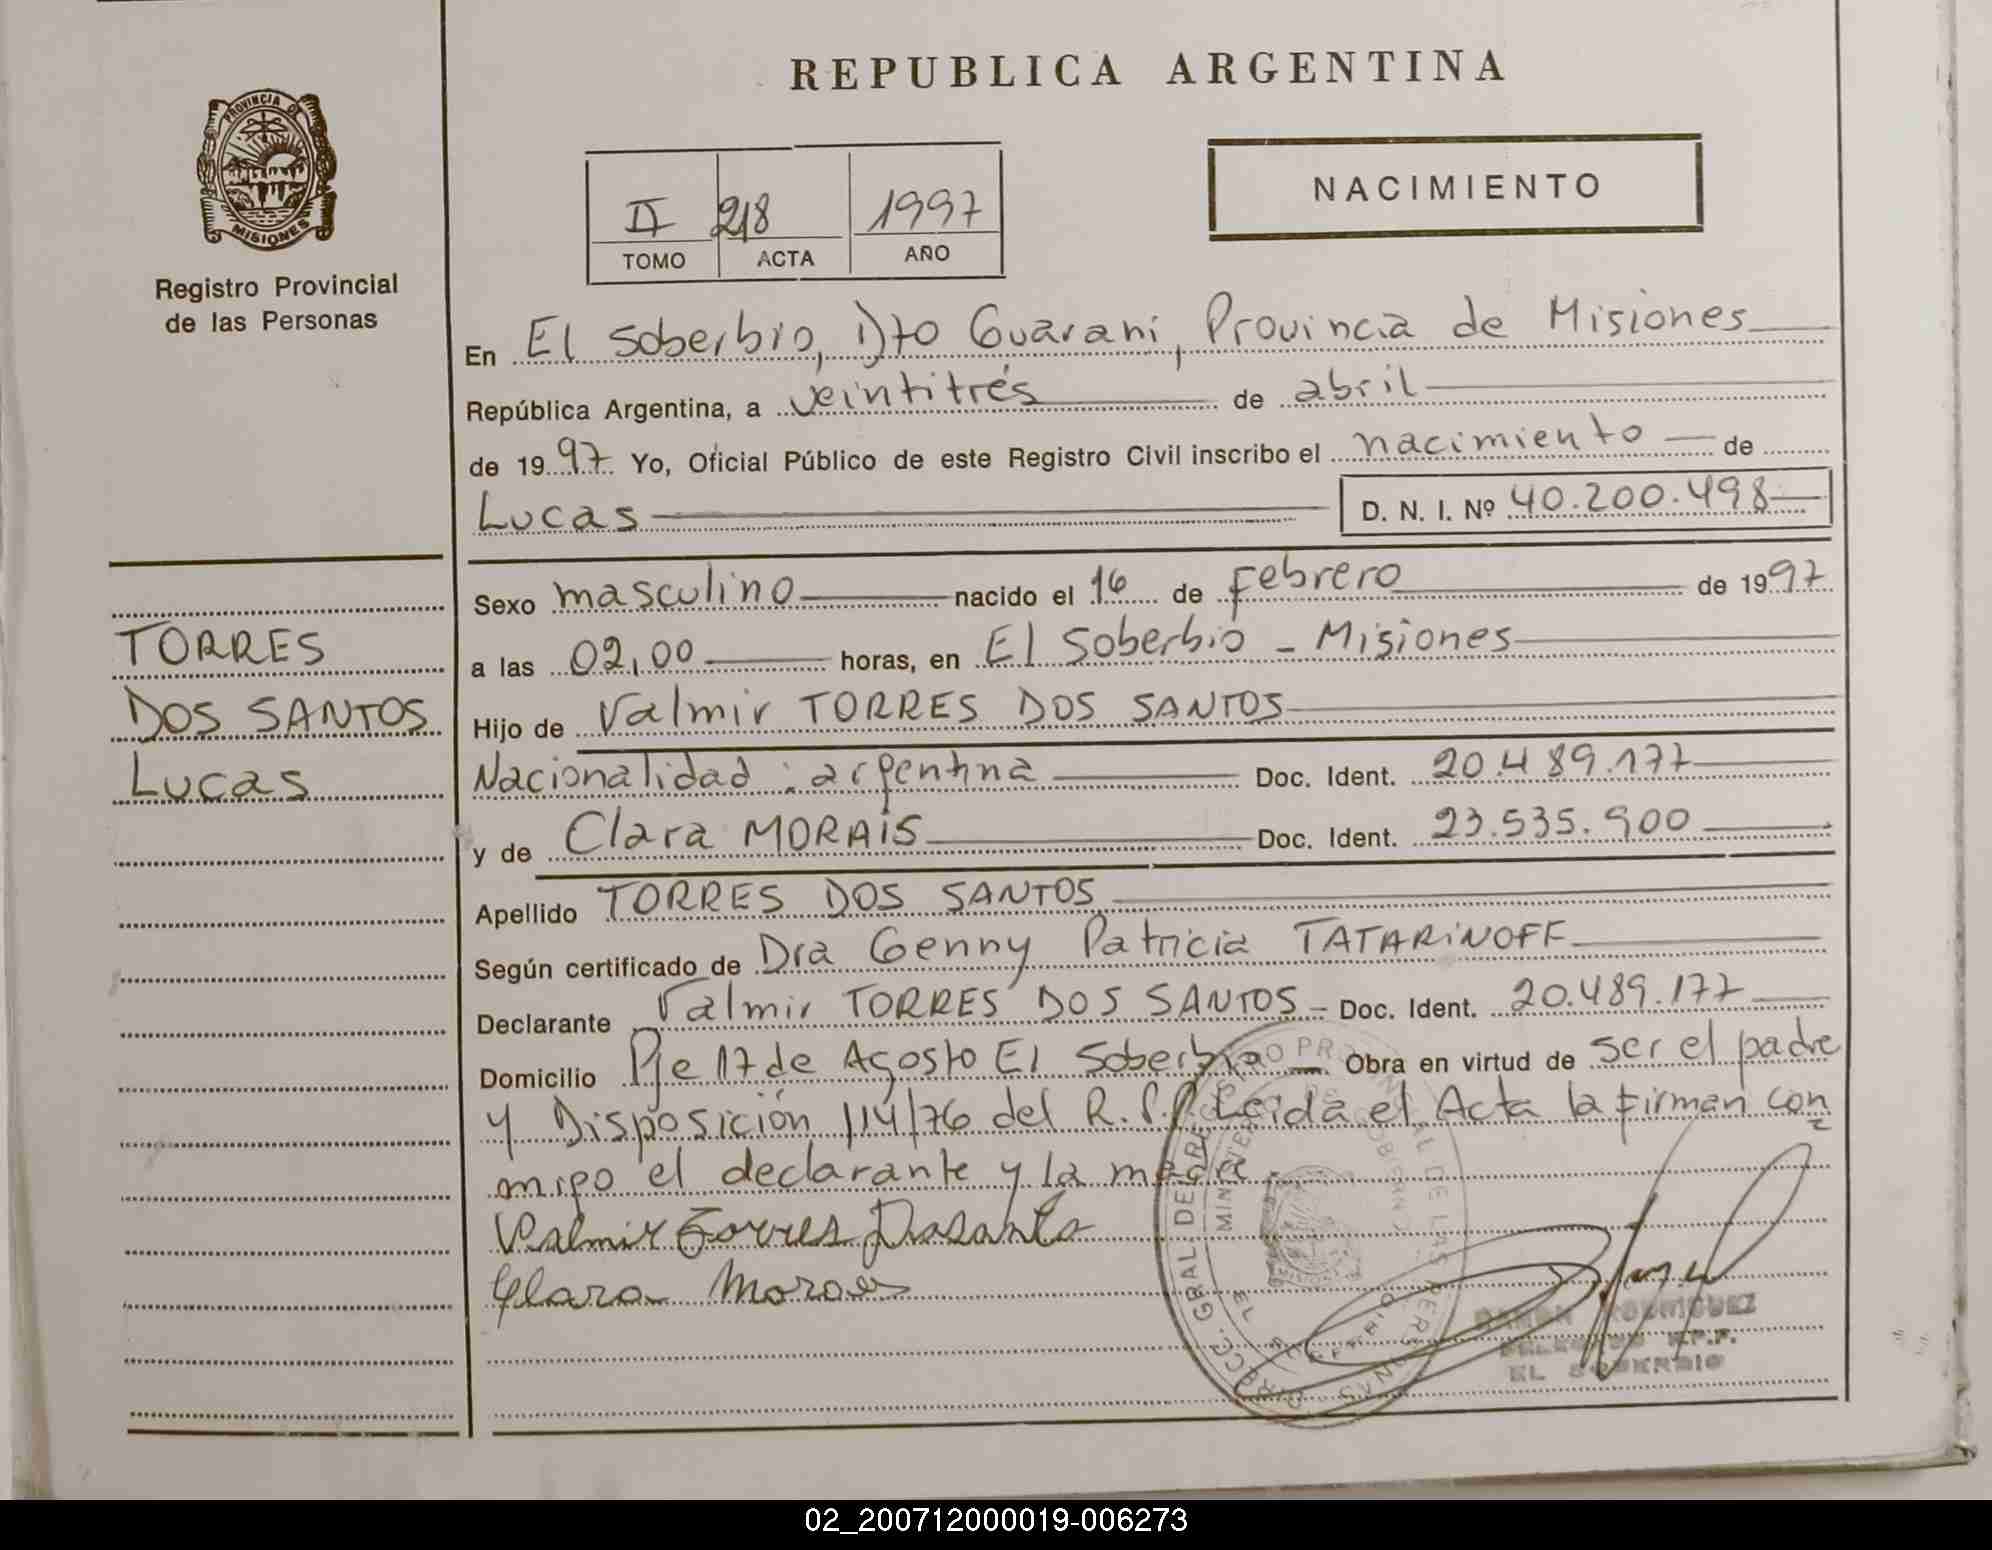 REPUBLICA ARGENTINA
PROVINCIA DE
MISIONES
Registro Provincial
de las Personas
II 218 1997
TOMO ACTA AÑO
NACIMIENTO
En El Soberbio, Dto Guaraní, Provincia de Misiones
República Argentina, a veintitrés de abril
de 1997 Yo, Oficial Público de este Registro Civil inscribo el nacimiento de
Lucas D. N. I. Nº 40.200.498
Sexo masculino nacido el 16 de Febrero de 1997
a las 02,00 horas, en El Soberbio - Misiones
Hijo de Valmir TORRES DOS SANTOS
Nacionalidad: argentina Doc. Ident. 20.489.177
y de Clara MORAIS Doc. Ident. 23.535.900
Apellido TORRES DOS SANTOS
Según certificado de Dra Genny Patricia TATARINOFF
Declarante Valmir TORRES DOS SANTOS - Doc. Ident. 20.489.177
Domicilio Pje 17 de Agosto El Soberbio Obra en virtud de ser el padre
y Disposición 114/76 del R.P.P. Leída el Acta la firman con
migo el declarante y la madre.
Valmir Torres Dosanto
Clara Moraes
TORRES
DOS SANTOS
Lucas
DIRECC. GRAL. DE REGISTRO PROVINCIAL DE LAS PERSONAS
EL SOBERBIO
RAMON RODRIGUEZ
DELEGADO R.P.P.
EL SOBERBIO
02_200712000019-006273